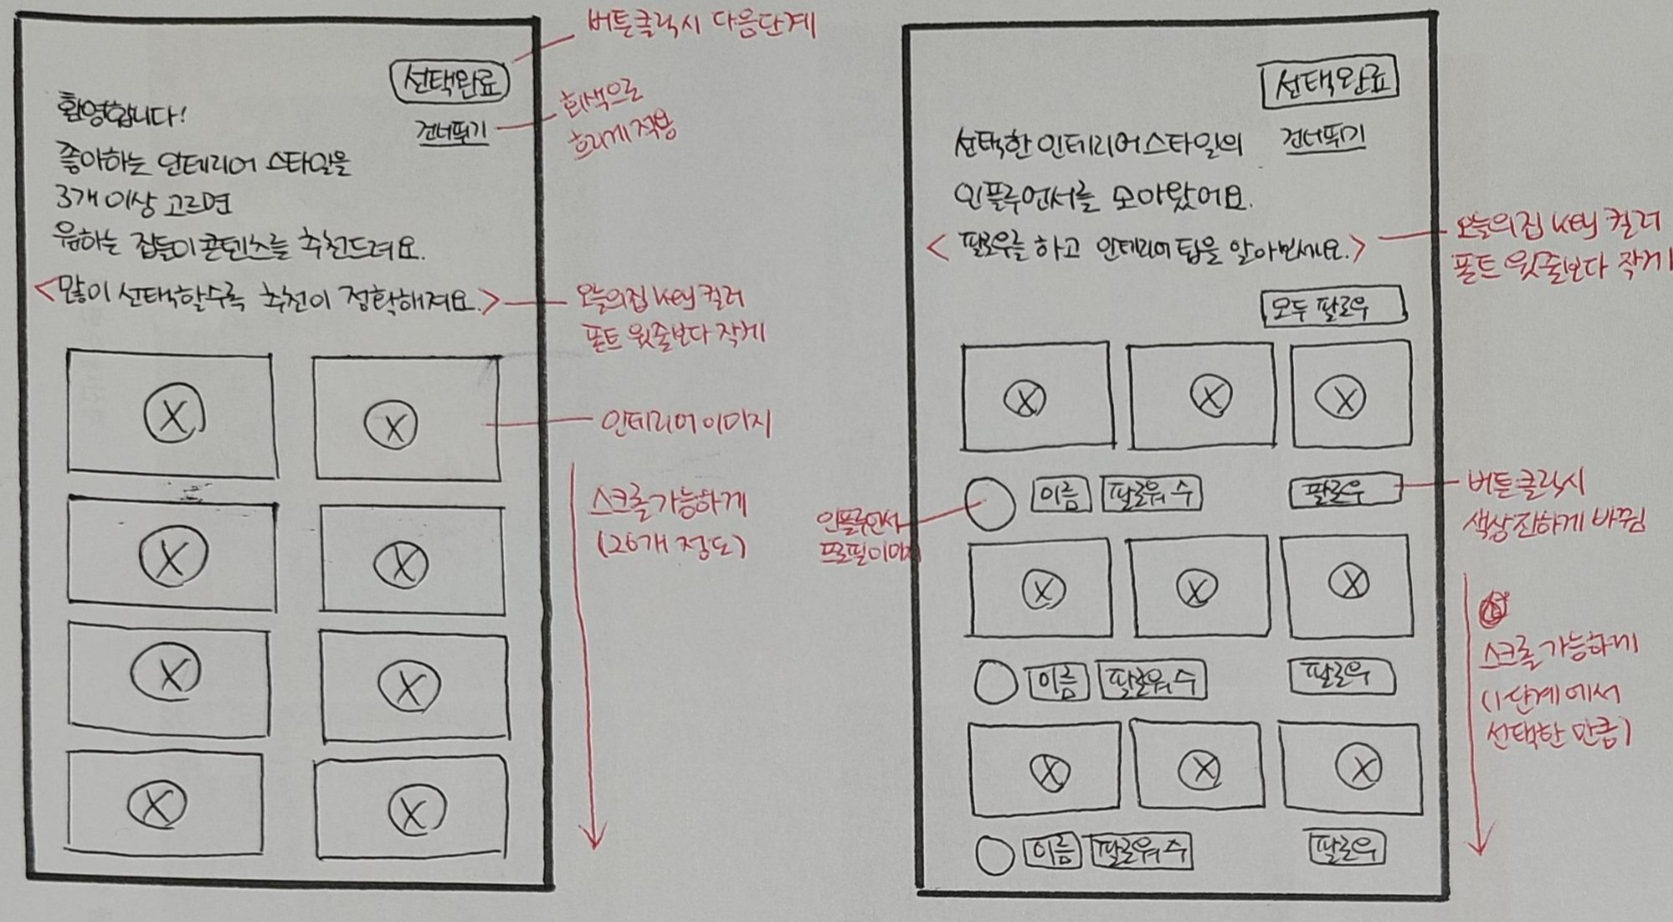 버튼클릭시 다음단계
선택완료
환영합니다!
건너뛰기
회색으로
흐리게 적용
좋아하는 인테리어 스타일을
3개 이상 고르면
유하는 집들이콘텐츠를 추천드려요.
<많이 선택할수록 추천이 정확해져요.>
오늘의집 key 컬러
폰트 윗줄보다 작게
X
X
인테리어이미지
X
X
스크롤가능하게
(20개 정도)
X
X
X
X
선택완료
선택한 인테리어스타일의
건너뛰기
인플루언서를 모아왔어요.
<팔로우를 하고 인테리어 팁을 알아보세요.>
오늘의집 key 컬러
폰트 윗줄보다 작게
모두 팔로우
X
X
X
인플루언서
프로필이미지
이름
팔로워 수
팔로우
버튼클릭시
색상진하게 바뀜
X
X
X
이름
팔로워 수
팔로우
스크롤가능하게
(1단계에서
선택한 만큼)
X
X
X
이름
팔로워 수
팔로우